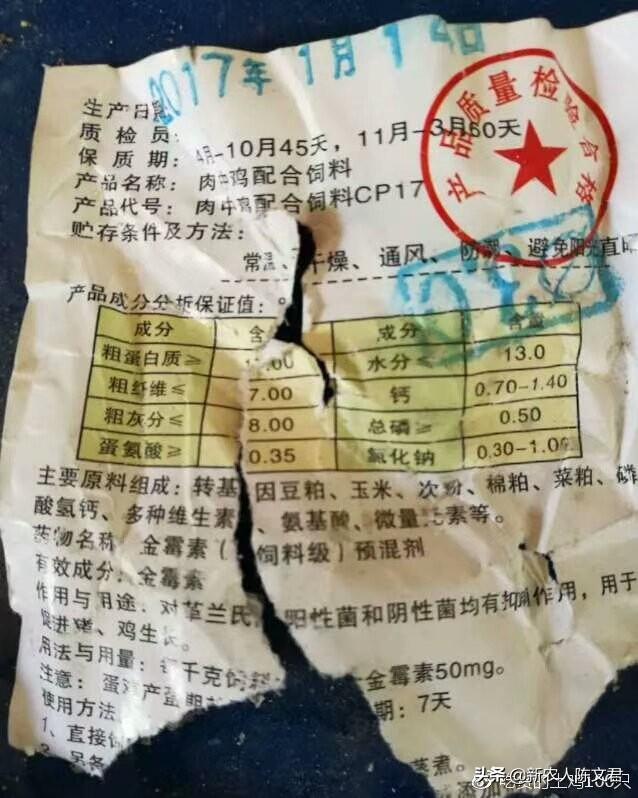 2017年1月14日
生产日期
质检员:
保质期: 4月-10月45天，11月-3月60天
产品名称: 肉中鸡配合饲料
产品代号: 肉中鸡配合饲料CP17
贮存条件及方法:
常温、干燥、通风、防潮、避免阳光直
产品质量检验合格
产品成分分析保证值:
成分 含 成分 含量
粗蛋白质≥ .00 水分≤ 13.0
粗纤维≤ 7.00 钙 0.70-1.40
粗灰分≤ 8.00 总磷≥ 0.50
蛋氨酸≥ 0.35 氯化钠 0.30-1.00
主要原料组成: 转基因豆粕、玉米、次粉、棉粕、菜粕、
酸氢钙、多种维生素、氨基酸、微量元素等。
药物名称 金霉素（饲料级）预混剂
有效成分: 金霉素
作用与用途: 对革兰氏阳性菌和阴性菌均有抑制作用，用于
促进猪、鸡生长。
用法与用量: 每千克饲料 金霉素50mg。
注意: 蛋鸡产蛋期 期: 7天
使用方法
1、直接
2 煮。
头条 @新农人陈文君